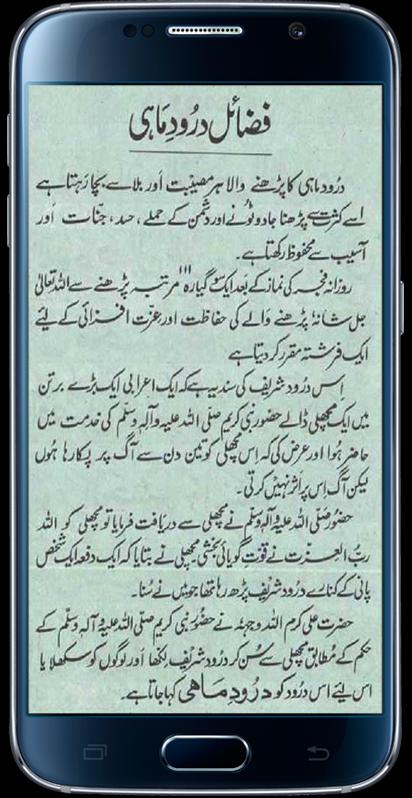 فضائل درُودِ مَاہی
درُود ماہی کا پڑھنے والا ہر مصیبت اَور بلا سے بچا رَہتا ہے
اسے کثرت سے پڑھنا جادو ٹونے اور دُشمن کے حملے، حسد، جنّات اور
آسیب سے محفوظ رکھتا ہے۔
روزانہ فجر کی نماز کے بعد ایک سو گیارہ ۱۱۱ مرتبہ پڑھنے سے اللہ تعالیٰ
جل شانہٗ پڑھنے والے کی حفاظت اور عزت افزائی کے لئے
ایک فرشتہ مقرر کر دیتا ہے
اِس درُود شریف کی سند یہ ہے کہ ایک اعرابی ایک بڑے برتن
میں ایک مچھلی ڈالے حضور نبی کریم صلی اللہ علیہ وآلہٖ وسلّم کی خدمت میں
حاضر ہُوا اور عرض کی کہ اِس مچھلی کو تین دن سے آگ پر پکا رہا ہُوں
لیکن آگ اِس پر اثر نہیں کرتی۔
حضُور صلّی اللہ علیہ وآلہٖ وسلّم نے مچھلی سے دریافت فرمایا تو مچھلی کو اللہ
ربُّ العزت نے قوّتِ گویائی بخشی مچھلی نے بتایا کہ ایک دفعہ ایک شخص
پانی کے کنارے درُود شریف پڑھ رہا تھا جو میں نے سُنا۔
حضرت علی کرم اللہ وجہہٗ نے حضُور نبی کریم صلّی اللہ علیہ وآلہٖ وسلّم کے
حکم کے مُطابق مچھلی سے سُن کر درُود شریف لکھا اور لوگوں کو سکھلایا
اس لیئے اس درُود کو درودِ ماھی کہا جاتا ہے۔